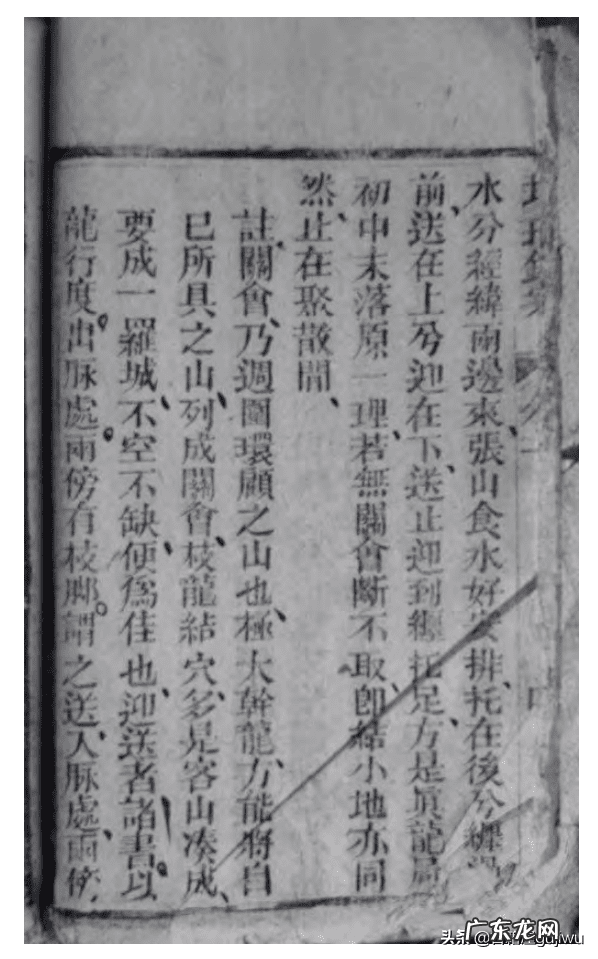 水分經緯兩邊來、張山食水好安排、托在後兮纏
前、送在上兮迎在下、送止迎到纏托足、方是眞龍局
初中末落原一理、若無關會斷不取、卽結小地亦同
然、止在聚散間、
註、關會、乃週圍環顧之山也、極大幹龍、方能將自
巳所具之山、列成關會、枝龍結穴、多是客山凑成、
要成一羅城、不空不缺、便爲佳也、迎送者、諸書以
龍行度、出脉處、兩傍有枝脚、謂之送、入脉處、兩傍、
头条
广东龙网